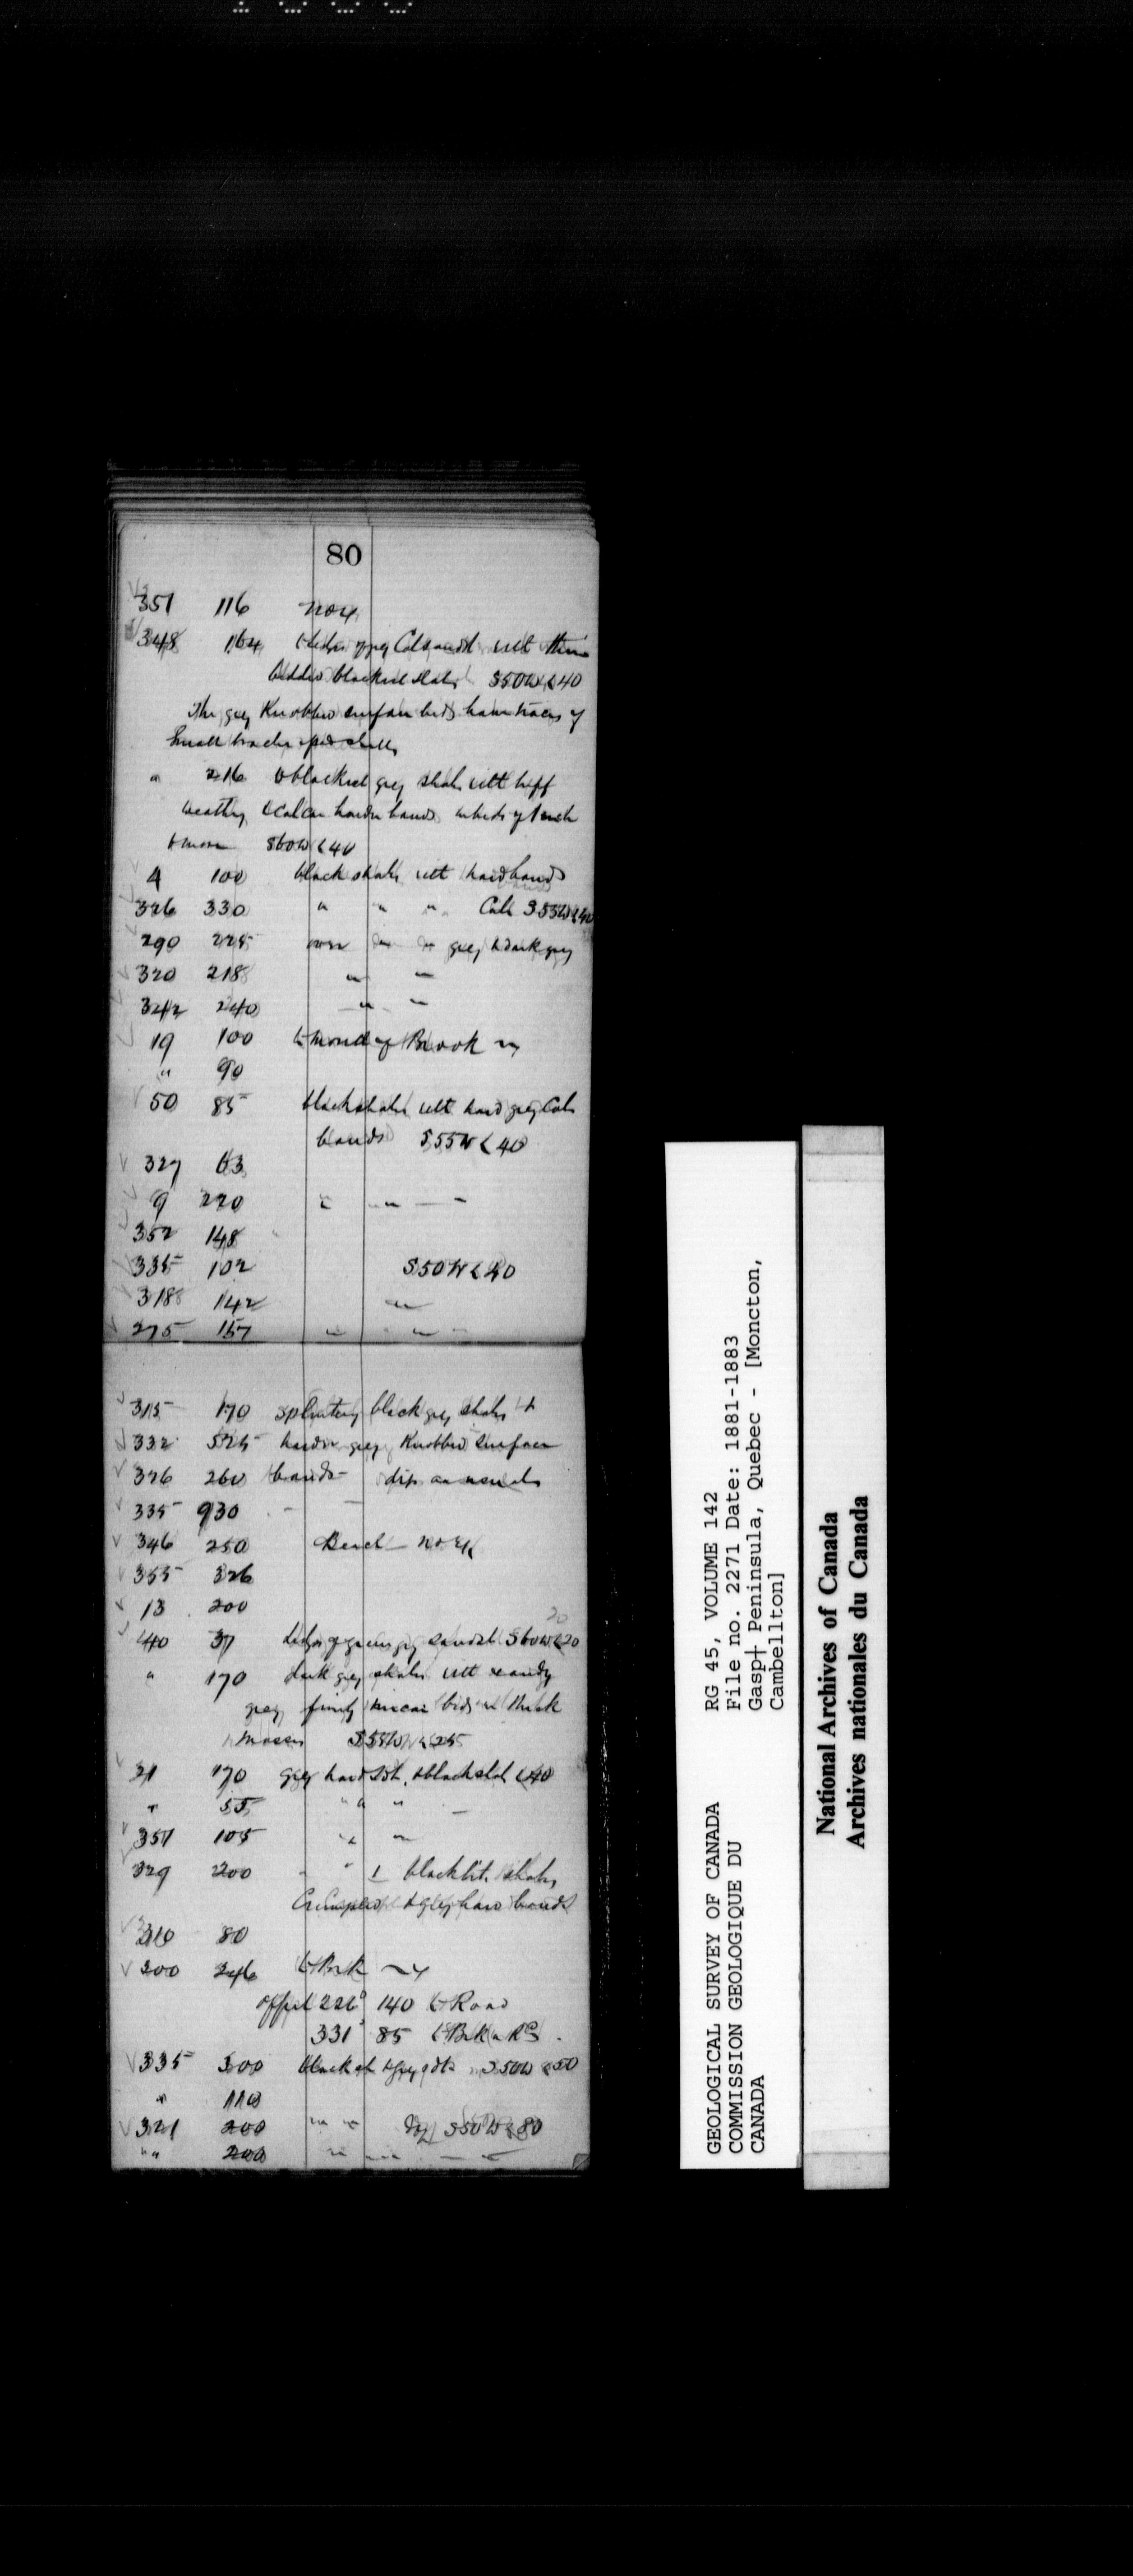 80
351 116 no ex
348 164 ledges grey Calc sandst with thin
bedded blackish slates S50W<40
The grey Knobbed surface beds have traces of
Small brachiopod shells
" 216 blackish grey shales with buff
weathg &calcar harder bands in beds of 1 inch
& more S60W<40
4 100 black shales with hard bands
326 330 " " " Calc S55W<40
290 225 over grey & dark grey
320 218 " "
342 240 " "
19 100 to mouth of Brook
" 90
50 85 black shales with hard grey Calc
bands S55W<40
327 63
9 220 " " "
352 148
335 102 S50W<40
318 142 "
275 157 " "
315 170 splintery black grey shales &
332 525 harder grey Knobbed surface
326 260 bands - dip as usual
335 930 - -
346 250 Beach - no ex
355 326
13 200
20
40 37 ledges of green grey sandst S60W<20
" 170 dark grey shales with sandy
grey finely micac beds in thick
masses S55W<25
21 170 grey hard Sst. & black slate <40
" 55 " "
351 105 " "
329 200 - " black bit. shales
Crumpled & grey hard bands
310 80
200 246 to Bk
offset 226° 140 to Road
331° 85 to Bk & Rd
335 300 black sh & grey sdst S50W<50
" 110
321 200 " " S50W<80
" " 200 " "
GEOLOGICAL SURVEY OF CANADA
COMMISSION GEOLOGIQUE DU
CANADA
RG 45, VOLUME 142
File no. 2271 Date: 1881-1883
Gasp† Peninsula, Quebec - [Moncton,
Cambellton]
National Archives of Canada
Archives nationales du Canada